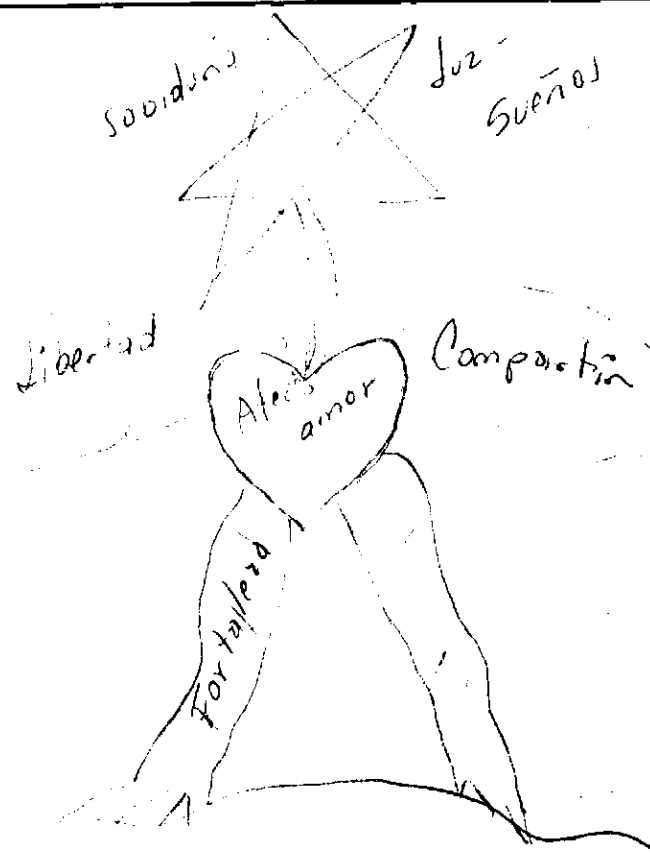 Sabiduria
luz -
Sueños
Libertad
Compartir
Afecto
amor
Fortaleza